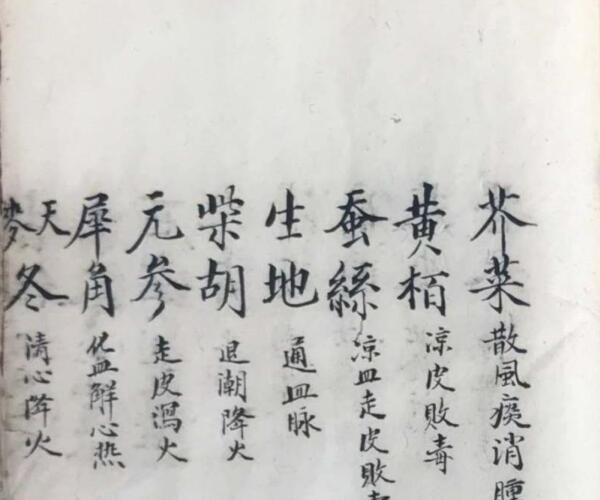 芥菜 散風痰消腫
黄栢 凉皮敗毒
蚕絲 凉血走皮敗
生地 通血脉
柴胡 退潮降火
元參 走皮瀉火
犀角 化血解心热
天麥冬 清心降火